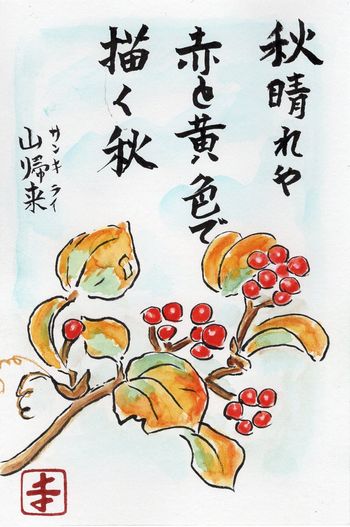 秋晴れや
赤と黄色で
描く秋
サンキライ
山帰来